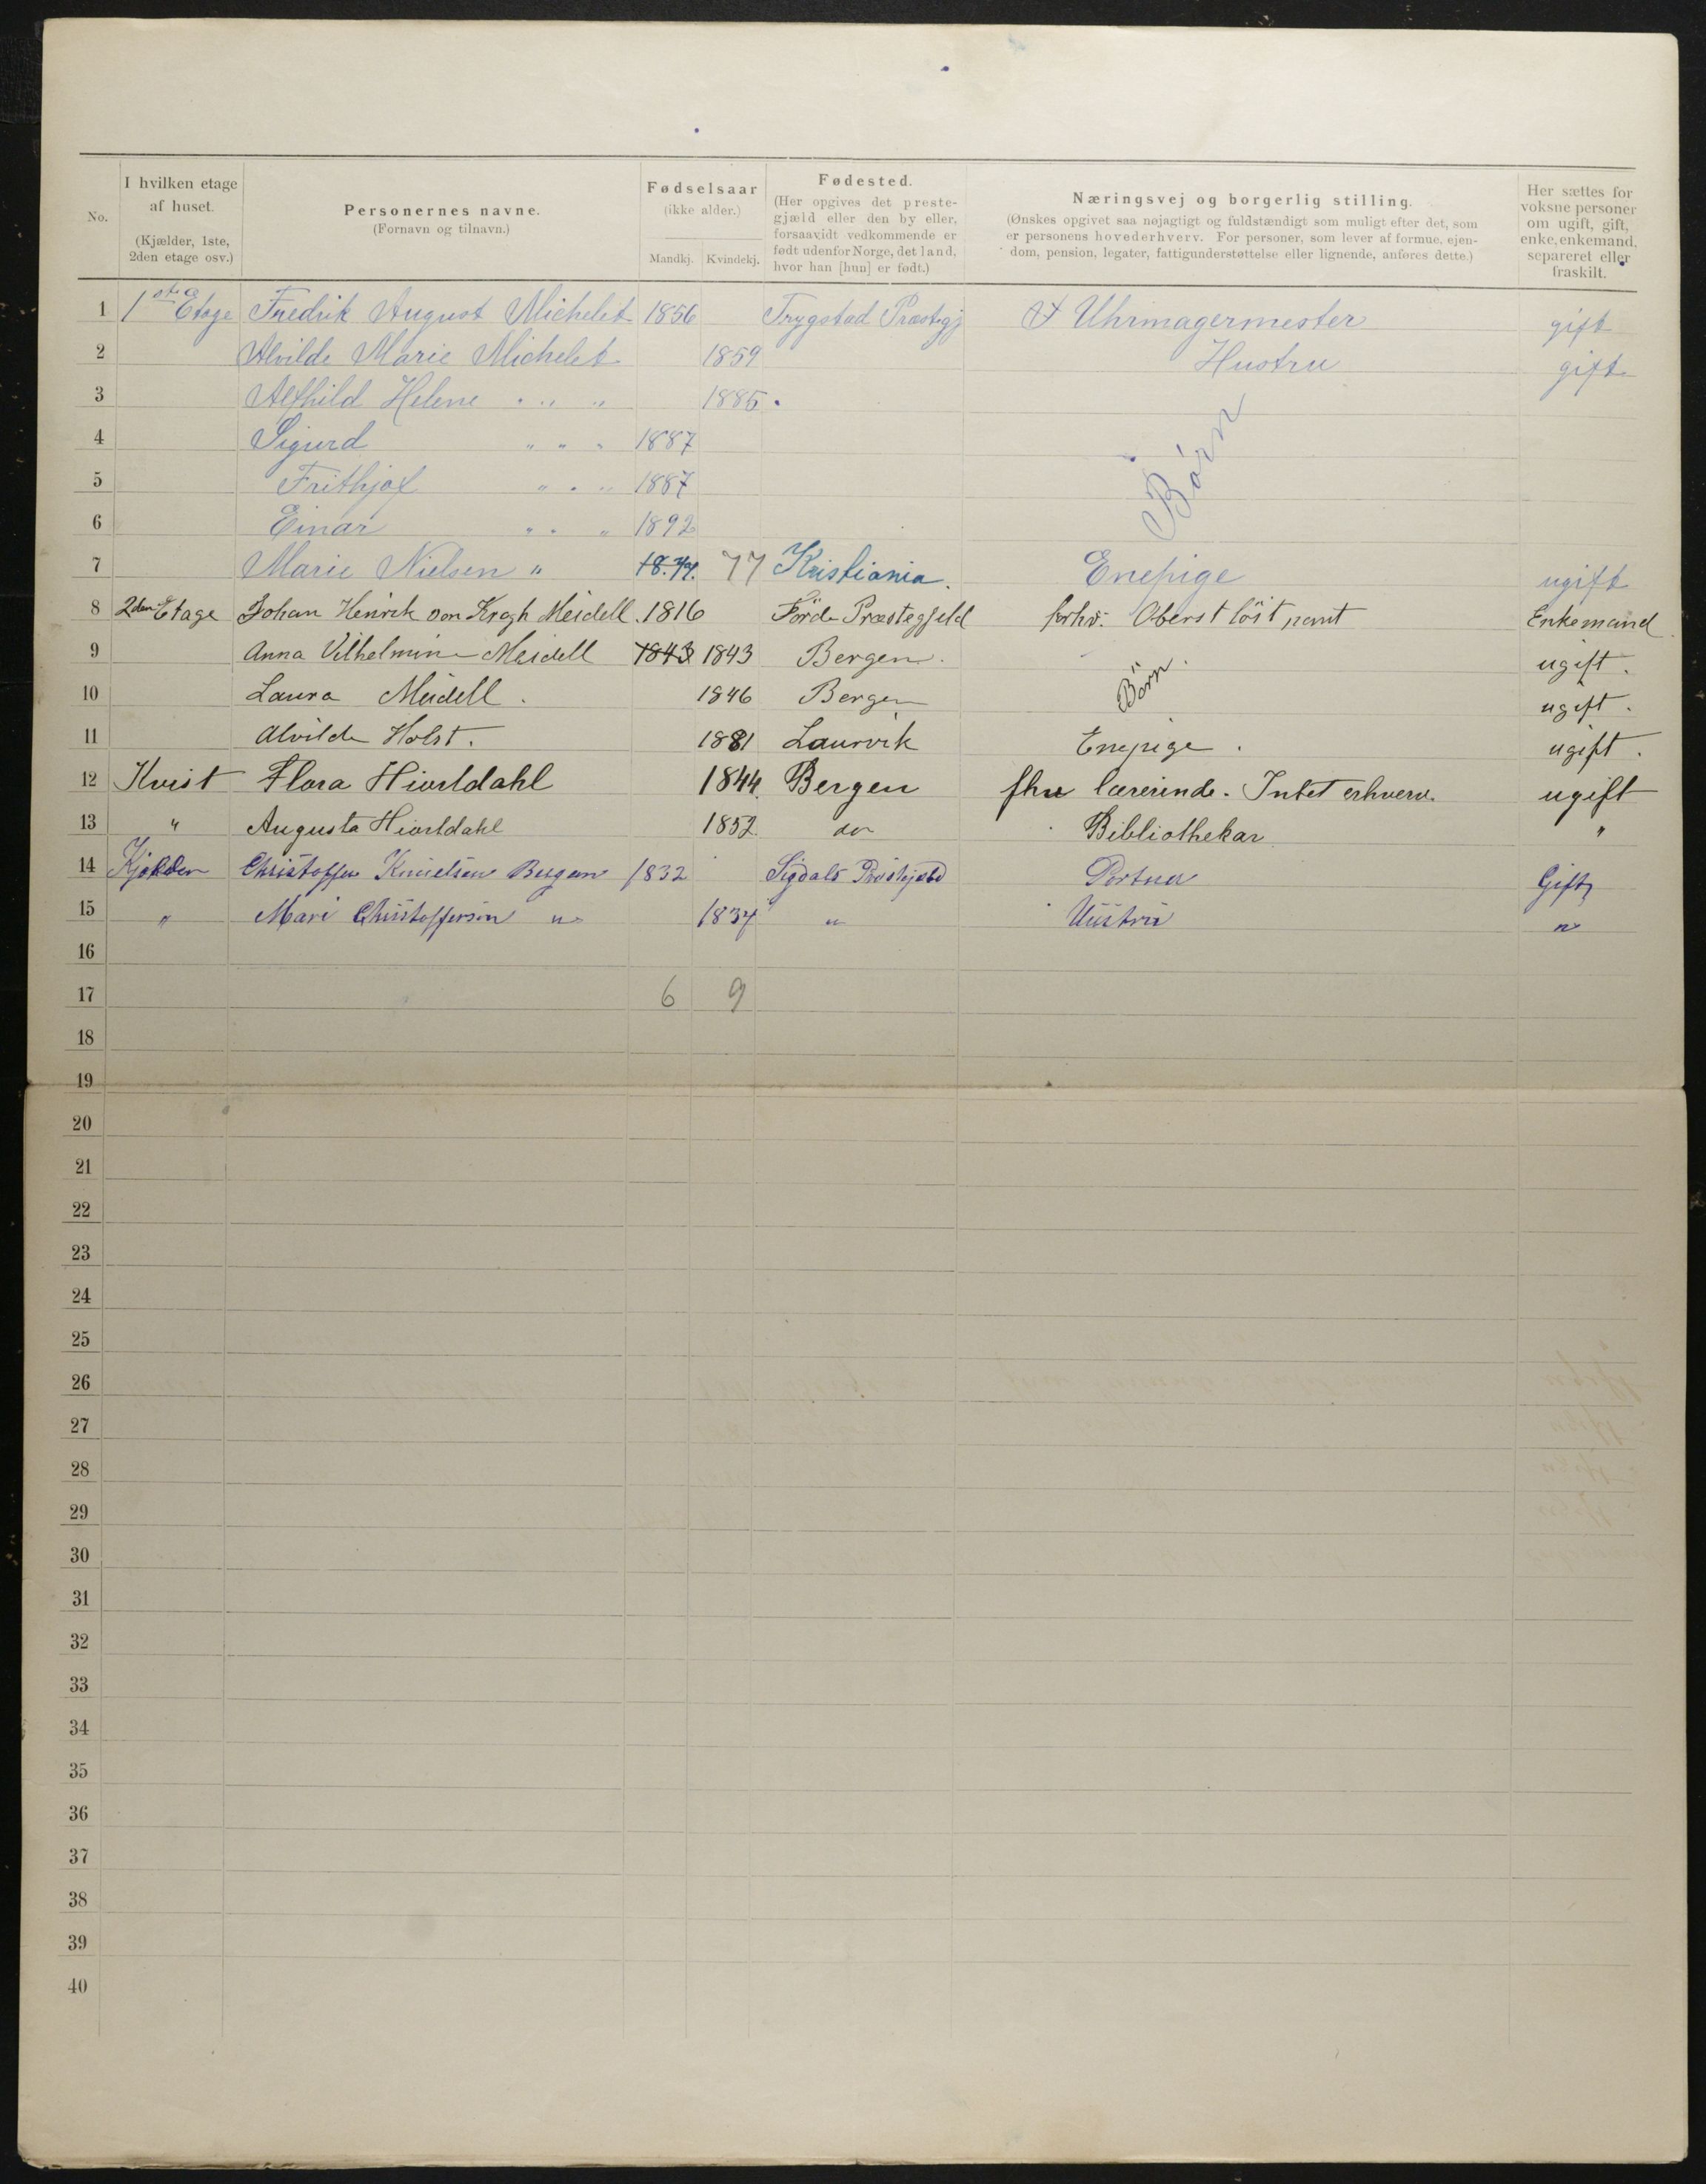 No.
I hvilken etage af huset. (Kjælder, 1ste, 2den etage osv.)
Personernes navne. (Fornavn og tilnavn.)
Fødselsaar (ikke alder.) Mandkj. Kvindekj.
Fødested. (Her opgives det prestegjæld eller den by eller, forsaavidt vedkommende er født udenfor Norge, det land, hvor han [hun] er født.)
Næringsvej og borgerlig stilling. (Ønskes opgivet saa nøjagtigt og fuldstændigt som muligt efter det, som er personens hovederhverv. For personer, som lever af formue, ejendom, pension, legater, fattigunderstøttelse eller lignende, anføres dette.)
Her sættes for voksne personer om ugift, gift, enke, enkemand, separeret eller fraskilt.
1 1ste Etage Fredrik August Michelet 1856 Trygstad Præstegj Uhrmagermester gift
2 Alvilde Marie Michelet 1859 Hustru gift
3 Alfhild Helene " " " 1885
4 Sigurd " " " 1887
5 Frithjof " " " 1887
6 Einar " " " 1892
Børn
7 Marie Nielsen " 18.77. 77 Kristiania. Enepige ugift
8 2den Etage Johan Henrik von Krogh Meidell. 1816 Förde Præstegjeld forhv. Oberstlöitnant Enkemand
9 Anna Vilhelmine Meidell 1843 1843 Bergen. ugift.
10 Laura Meidell. 1846 Bergen ugift.
Børn.
11 Alvilde Holst. 1881 Laurvik Enepige. ugift.
12 Kvist Flora Hiortdahl 1844. Bergen fhv lærerinde. Intet erhverv. ugift
13 " Augusta Hiortdahl 1852. do Bibliothekar "
14 Kjelder Christoffer Knudsen Bergan 1832 Sigdals Præstjeld Portner Gift
15 " Mari Christoffersen " 1834 " Hustru "
16
17 6 9
18
19
20
21
22
23
24
25
26
27
28
29
30
31
32
33
34
35
36
37
38
39
40